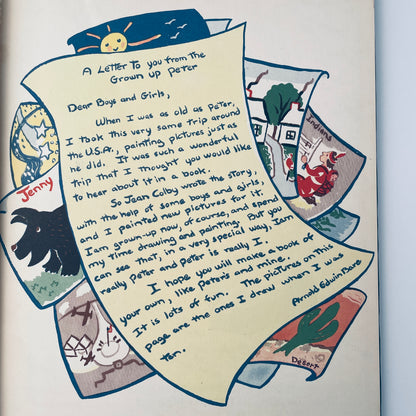 A Letter to you from the
Grown up Peter
Dear Boys and Girls,
When I was as old as Peter,
I took this very same trip around
the U.S.A., painting pictures just as
he did. It was such a wonderful
trip that I thought you would like
to hear about it in a book.
So Jean Colby wrote the story,
with the help of some boys and girls;
and I painted new pictures for it.
I am grown-up now, of course, and spend
my time drawing and painting. But you
can see that, in a very special way, I am
really Peter and Peter is really I.
I hope you will make a book of
your own, like Peter's and mine.
It is lots of fun. The pictures on this
page are the ones I drew when I was
ten.
Arnold Edwin Bare
Indians
Jenny
Desert